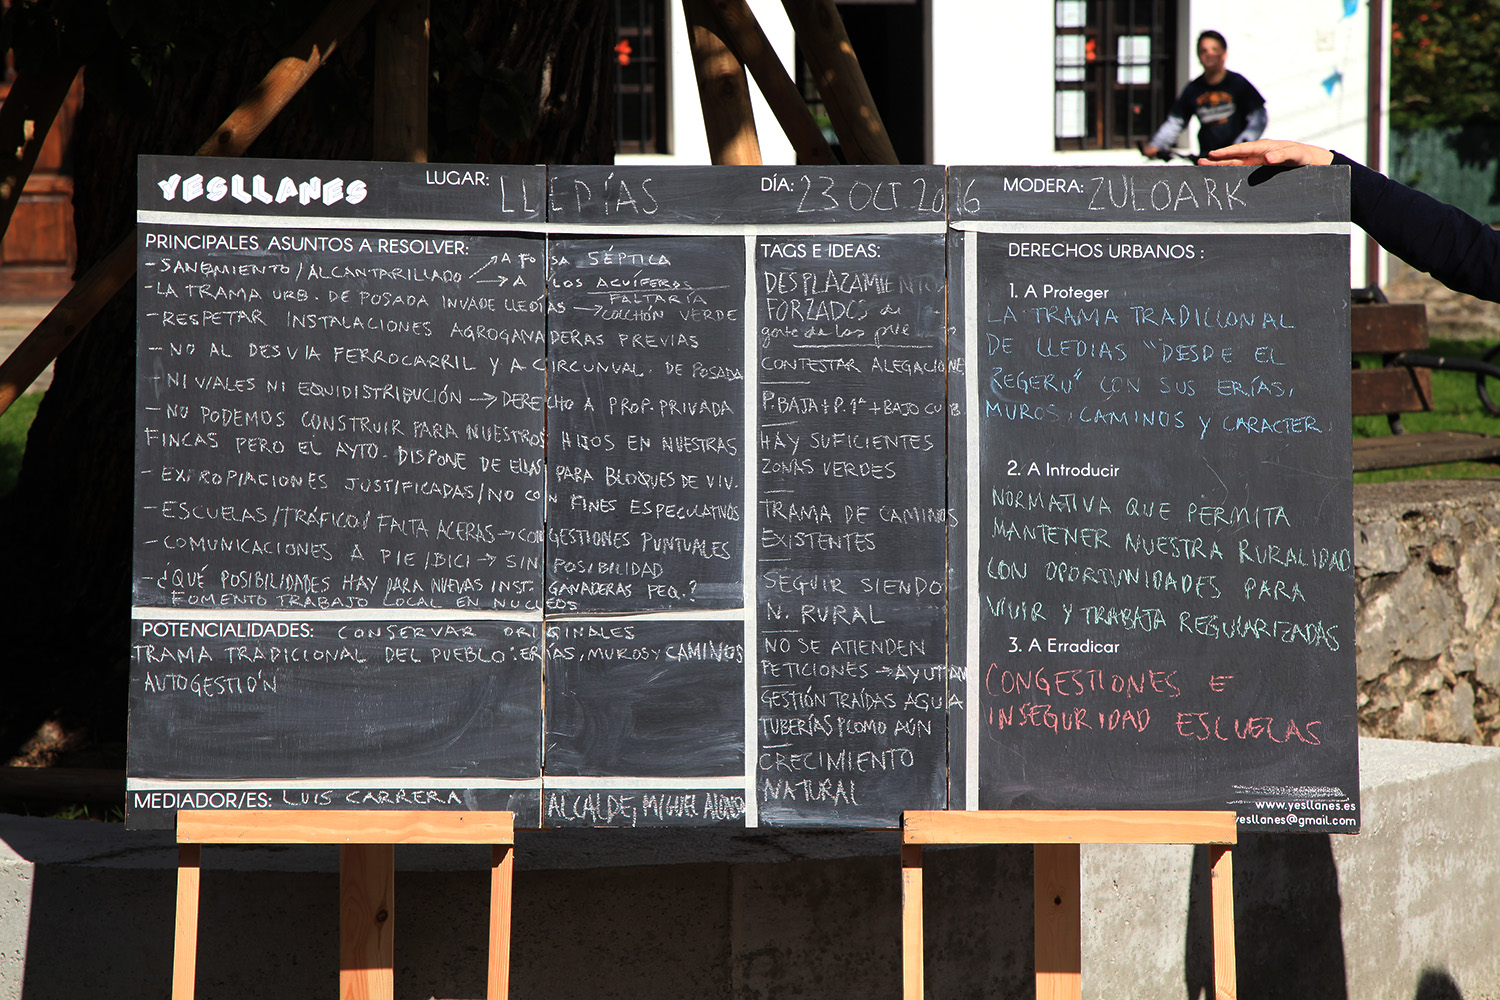 YESLLANES
LUGAR: LLEDÍAS
DÍA: 23 OCT. 2016
MODERA: ZULOARK
PRINCIPALES ASUNTOS A RESOLVER:
- SANEAMIENTO/ALCANTARILLADO → A FOSA SÉPTICA
→ A LOS ACUÍFEROS
- LA TRAMA URB. DE POSADA INVADE LLEDÍAS → FALTARÍA COLCHÓN VERDE
- RESPETAR INSTALACIONES AGROGANADERAS PREVIAS
- NO AL DESVIA FERROCARRIL Y A CIRCUNVAL. DE POSADA
- NI VIALES NI EQUIDISTRIBUCIÓN → DERECHO A PROP. PRIVADA
- NO PODEMOS CONSTRUIR PARA NUESTROS HIJOS EN NUESTRAS
FINCAS PERO EL AYTO. DISPONE DE ELLAS PARA BLOQUES DE VIV.
- EXPROPIACIONES JUSTIFICADAS/NO CON FINES ESPECULATIVOS
- ESCUELAS/TRÁFICO/FALTA ACERAS → CONGESTIONES PUNTUALES
- COMUNICACIONES A PIE/BICI → SIN POSIBILIDAD
- ¿QUÉ POSIBILIDADES HAY PARA NUEVAS INST. GANADERAS PEQ.?
FOMENTO TRABAJO LOCAL EN NUCLEOS
POTENCIALIDADES: CONSERVAR ORIGINALES
TRAMA TRADICIONAL DEL PUEBLO: ERÍAS, MUROS Y CAMINOS
- AUTOGESTIÓN
MEDIADOR/ES: LUIS CARRERA ALCALDE, MIGUEL ALONSO
TAGS E IDEAS:
DESPLAZAMIENTOS
FORZADOS de
gente de los
CONTESTAR ALEGACIONES
P. BAJA + P. 1ª + BAJO CUB.
HAY SUFICIENTES
ZONAS VERDES
TRAMA DE CAMINOS
EXISTENTES
SEGUIR SIENDO
N. RURAL
NO SE ATIENDEN
PETICIONES → AYUNTAM
GESTIÓN TRAÍDAS AGUA
TUBERÍAS PLOMO AÚN
CRECIMIENTO
NATURAL
DERECHOS URBANOS :
1. A Proteger
LA TRAMA TRADICIONAL
DE LLEDIAS "DESDE EL
REGERU" CON SUS ERÍAS,
MUROS, CAMINOS Y CARACTER.
2. A Introducir
NORMATIVA QUE PERMITA
MANTENER NUESTRA RURALIDAD
CON OPORTUNIDADES PARA
VIVIR Y TRABAJA REGULARIZADAS
3. A Erradicar
CONGESTIONES E
INSEGURIDAD ESCUELAS
www.yesllanes.es
yesllanes@gmail.com